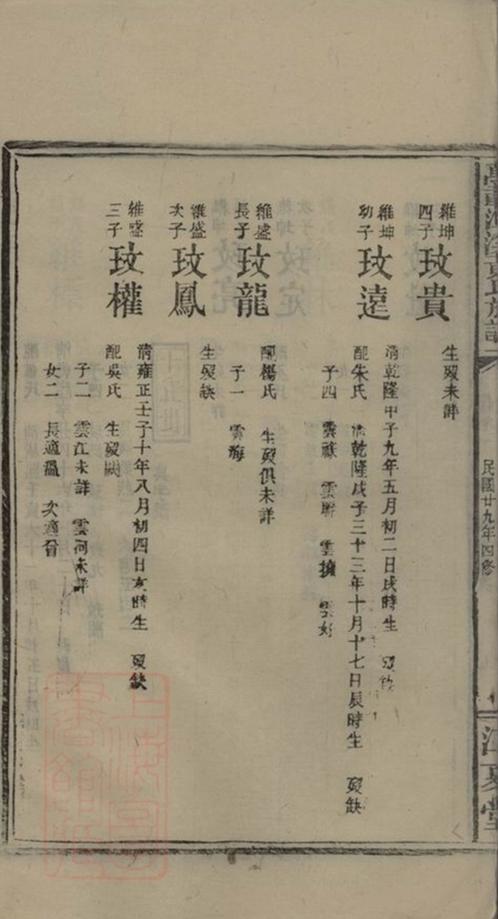 民國廿九年四修
江夏堂
維坤
四子
玫貴
生歿未詳
維坤
幼子
玫遠
清乾隆甲子九年五月初二日戌時生 歿
配朱氏 清乾隆戊子三十三年十月十七日辰時生 歿缺
子四 雲
維盛
長子
玫龍
配楊氏 生歿俱未詳
子一 雲海
維盛
次子
玫鳳
生歿缺
維盛
三子
玫權
清雍正壬子十年八月初四日亥時生 歿缺
配吳氏 生歿闕
子二 雲江未詳 雲河未詳
女二 長適溫 次適晉